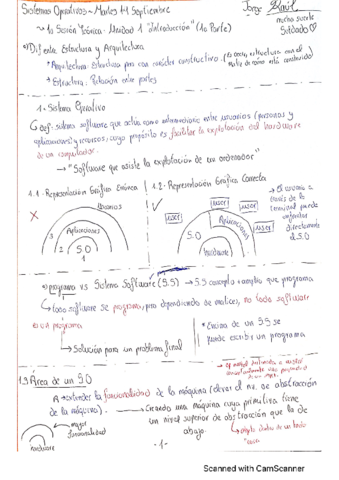 Sistemas Operativos ~ Martes 14 Septiembre
Jorge
mucha suerte
Soldado ♡
~ 1a Sesión Teórica: Unidad 1 "Introducción" (1a Parte)
a) Difiente Estructura y Arquitectura
* Arquitectura: Estructura pero con carácter constructivo.
* Estructura: Relación entre partes
1.- Sistema Operativo
↳ def: sistema software que actúa como intermediario entre usuarios (personas y
aplicaciones) y recursos, cuyo propósito es facilitar la explotación del hardware
de un computador.
→ "Software que asiste la explotación de un ordenador"
4.1.- Representación Gráfica Errónea
4.2.- Representación Gráfica Correcta
X
✓
Usuarios
3
Aplicaciones
2
S.O
1
user
user
user
Aplicaciones
S.O
Hardware
→ El usuario a
través de la
terminal puede
directamente
el S.O
*) programa vs Sistema Software (S.S) → S.S concepto + amplio que programa
↳ todo software se programa, pero dependiendo de matices, no todo software
es un programa
→ Solución para un problema final
* Encima de un SS se
puede escribir un programa
1.3 Área de un S.O
A → extender la funcionalidad de la máquina (elevar el nv. de abstracción
de la máquina).
→ Creando una máquina cuya primitiva tiene
un nivel superior de abstracción que la de
abajo.
mayor
funcionalidad
Hardware
-1-
Scanned with CamScanner